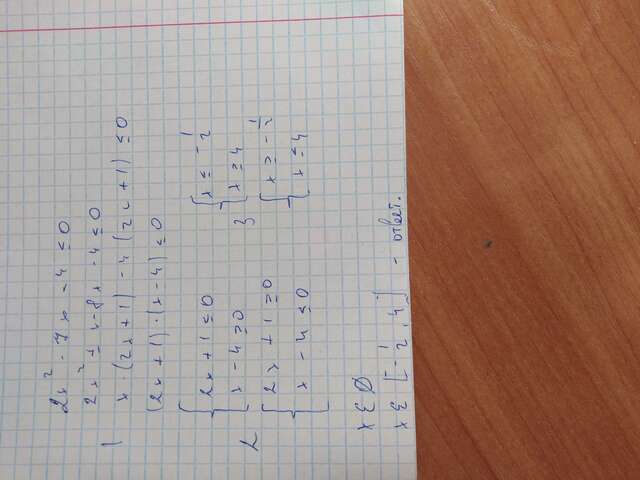 2x² - 7x - 4 ≤ 0
2x² + x - 8x - 4 ≤ 0
1 x · (2x + 1) - 4 (2x + 1) ≤ 0
(2x + 1) · (x - 4) ≤ 0
2 { 2x + 1 ≤ 0
x - 4 ≥ 0
{ 2x + 1 ≥ 0
x - 4 ≤ 0
3 { x ≤ - 1/2
x ≥ 4
{ x ≥ - 1/2
x ≤ 4
x ∈ ∅
x ∈ [- 1/2, 4] - ответ.